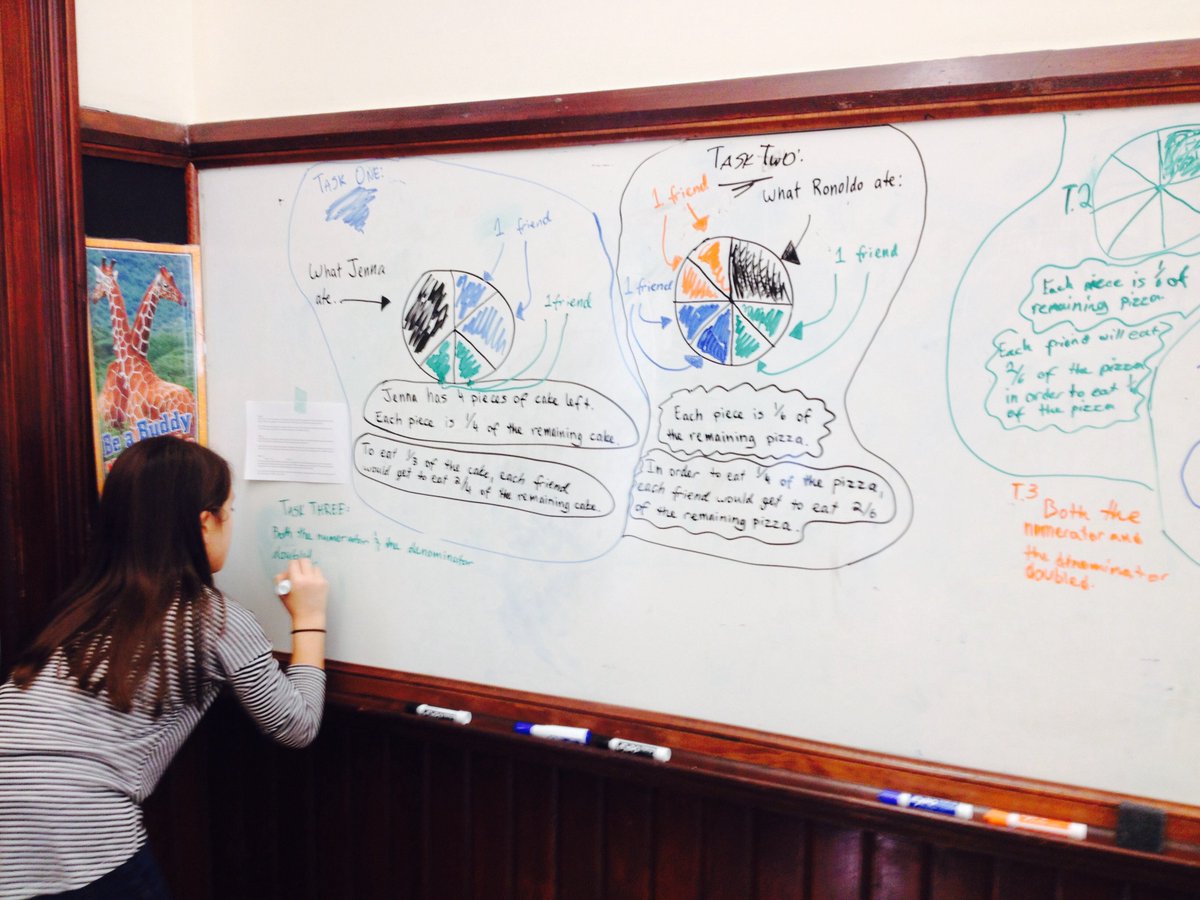 TASK ONE:
1 friend
What Jenna
ate.
1 friend
Jenna has 4 pieces of cake left.
Each piece is 1/4 of the remaining cake.
To eat 1/3 of the cake, each friend
would get to eat 2/4 of the remaining cake.
TASK TWO:
1 friend
What Ronoldo ate:
1 friend
1 friend
Each piece is 1/6 of
the remaining pizza.
In order to eat 1/4 of the pizza,
each friend would get to eat 2/6
of the remaining pizza.
T.2
Each piece is 1/6 of
remaining pizza.
Each friend will eat
2/6 of the pizza
in order to eat
of the pizza
T.3 Both the
numerator and
the denominator
doubled.
Be a Buddy
TASK THREE:
Both the numerator & the denominator
doubled